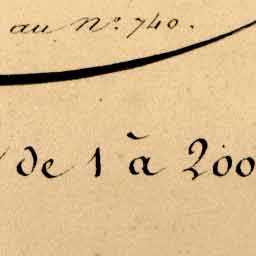 au Nº. 740.
de 1 à 200